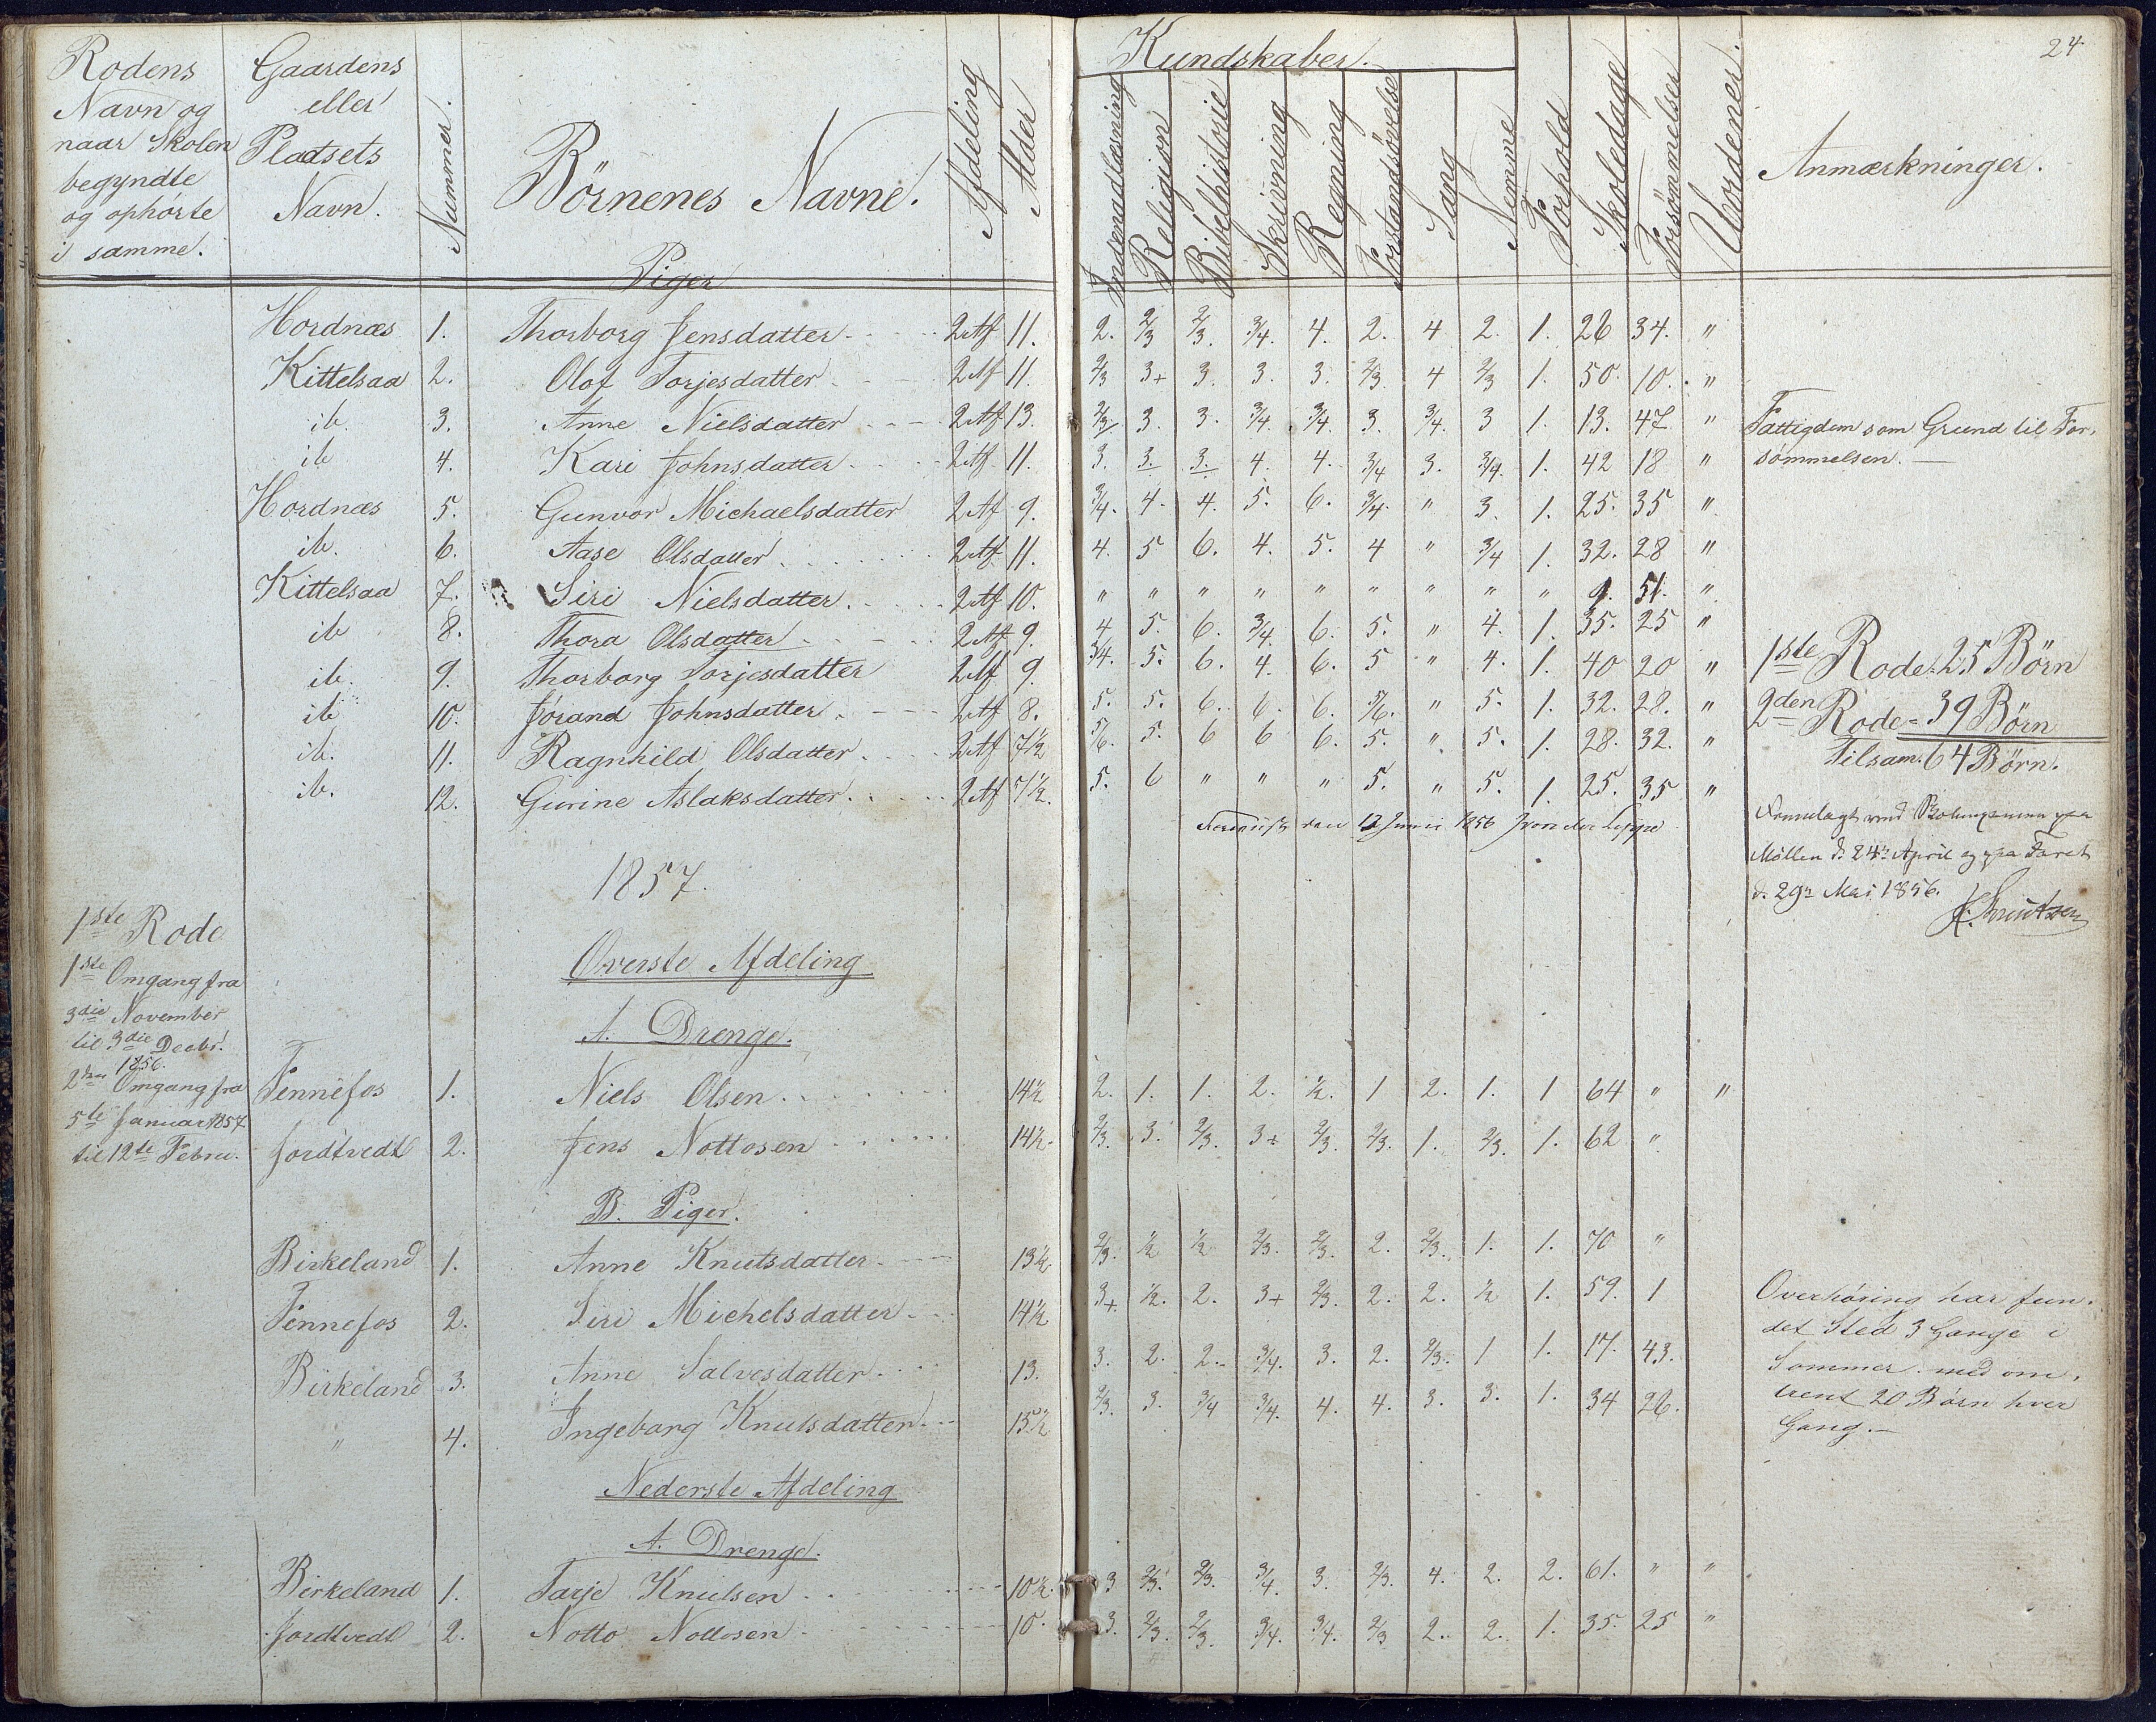 24
Rodens Navn og naar Skolen begyndte og ophørte i samme.
Gaardens eller Pladsets Navn.
Nummer.
Börnenes Navne.
Afdeling
Alder
Kundskaber.
Indenadlæsning
Religion
Bibelhistorie
Skrivning
Regning
Forstandsövelse
Sang
Nemme
Forhold
Skoledage
Forsømmelser
Uordener.
Anmærkninger.
Piger
Hordnæs 1. Thorborg Jensdatter 2 Af 11. 2. 2/3 2/3. 3/4. 4. 2. 4 2. 1. 26 34. "
Kittelsaa 2. Olof Torjesdatter 2 Af 11. 2/3 3+ 3. 3. 3. 2/3. 4 2/3 1. 50. 10. "
ib. 3. Anne Nielsdatter 2 Af 13. 2/3 3. 3. 3/4 3/4. 3. 3/4. 3 1. 13. 47 " Fattigdom som Grund til For-
ib 4. Kari Johnsdatter 2 Af 11. 3. 3. 3. 4. 4. 3/4 3. 3/4. 1. 42 18 " sömmelsen.
Hordnæs 5. Gunvor Michaelsdatter 2 Af 9. 3/4. 4. 4. 5. 6. 3/4. " 3. 1. 25. 35 "
ib. 6. Aase Olsdatter 2 Af 11. 4. 5 6. 4. 5. 4 " 3/4 1. 32. 28 "
Kittelsaa 7. Siri Nielsdatter. 2 Af 10. " " " " " " " " " 9. 51. "
ib 8. Thora Olsdatter 2 Af 9. 4 5. 6. 3/4. 6. 5. " 4. 1. 35. 25 "
ib. 9. Thorborg Torjesdatter 2 Af 9. 3/4. 5. 6. 4. 6. 5 " 4. 1. 40 20 " 1ste Rode. 25 Börn
ib 10. Jörand Johnsdatter. 2 Af 8. 5. 5. 6. 6. 6. 5/6. " 5. 1. 32. 28. " 2den Rode = 39 Börn
ib. 11. Ragnhild Olsdatter. 2 Af 7 1/2 5/6. 5. 6 6 6. 5. " 5. 1. 28. 32. " Tilsam. 64 Börn.
ib. 12. Gurine Aslaksdatter. 2 Af 7 1/2. 5. 6 " " " 5. " 5. 1. 25. 35 "
den 12 Junii 1856
Fremlagt ved
Möllen d. 24de April og paa
d. 29de Mai 1856.
1857.
1ste Rode
1ste Omgang fra
3die November
til 3die Decbr.
1856.
2den Omgang fra
5te Januar 1857
til 12te Febru.
Överste Afdeling
A. Drenge.
Fennefos 1. Niels Olsen 14 1/2 2. 1. 1. 2. 1/2. 1 2. 1. 1 64 " "
Jordtvedt 2. Jens Nottosen 14 1/2 2/3. 3. 2/3. 3+ 2/3. 2/3. 1. 2/3. 1. 62 "
B. Piger.
Birkeland 1. Anne Knutsdatter 13 1/2 2/3. 1/2 1/2 2/3. 2/3. 2. 2/3. 1. 1. 70 "
Fennefos 2. Siri Michelsdatter 14 1/2 3+ 1/2. 2. 3+ 2/3. 2. 2. 1/2 1. 59. 1
Birkeland 3. Anne Salvesdatter 13. 3. 2. 2. 3/4. 3. 2. 2/3. 1 1. 17. 43.
" 4. Ingeborg Knutsdatter 15 1/2 2/3. 3. 3/4 3/4. 4. 4. 3. 3. 1. 34 26.
Overhöring har fun-
det Sted 3 Gange i
Sommer med om-
trent 20 Börn hver
Gang.
Nederste Afdeling
A. Drenge.
Birkeland 1. Tarje Knutsen 10 1/2. 3 2/3. 2/3. 3/4. 3. 2/3. 4. 2. 2. 61. " "
Jordtvedt 2. Notto Nottosen 10. 3. 2/3. 2/3. 3/4. 3/4. 2/3 2. 2. 1. 35. 25 "